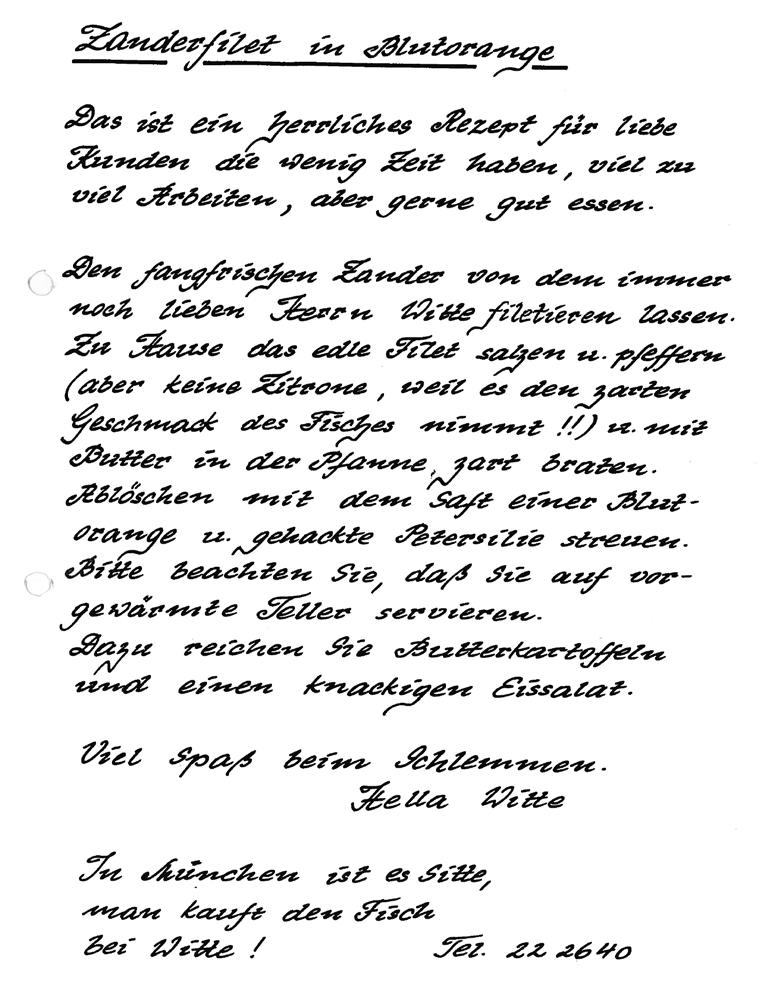 Zanderfilet in Blutorange
Das ist ein herrliches Rezept für liebe
Kunden die wenig Zeit haben, viel zu
viel Arbeiten, aber gerne gut essen.
Den fangfrischen Zander von dem immer
noch lieben Herrn Witte filetieren lassen.
Zu Hause das edle Filet salzen u. pfeffern
(aber keine Zitrone, weil es den zarten
Geschmack des Fisches nimmt!!) u. mit
Butter in der Pfanne, zart braten.
Ablöschen mit dem Saft einer Blut-
orange u. gehackte Petersilie streuen.
Bitte beachten Sie, daß Sie auf vor-
gewärmte Teller servieren.
Dazu reichen Sie Butterkartoffeln
und einen knackigen Eissalat.
Viel Spaß beim Schlemmen.
Hella Witte
In München ist es Sitte,
man kauft den Fisch
bei Witte! Tel. 22 2640